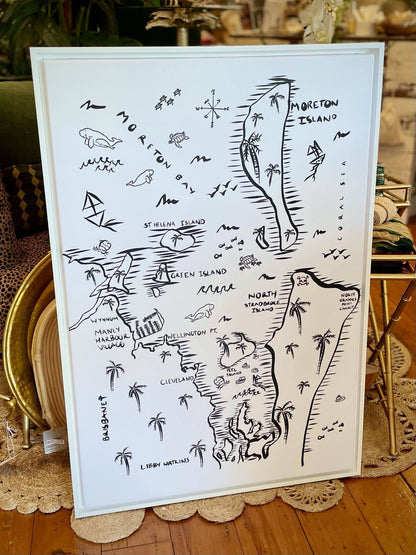 MORETON
ISLAND
MORETON BAY
CORAL SEA
ST HELENA ISLAND
GREEN ISLAND
NORTH
STRADBROKE
ISLAND
WYNNUM
MANLY
HARBOUR
VILLAGE
WELLINGTON PT.
PEEL
ISLAND
CLEVELAND
BRISBANE
LIBBY WATKINS